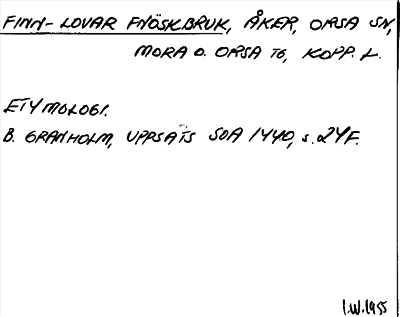 FINN-LOVAR FNÖSKBRUK, ÅKER, ORSA SN,
MORA O. ORSA TG, KOPP. L.
ETYMOLOGI.
B. GRANHOLM, UPPSATS SOA 1440, s. 24F.
I.W. 1955